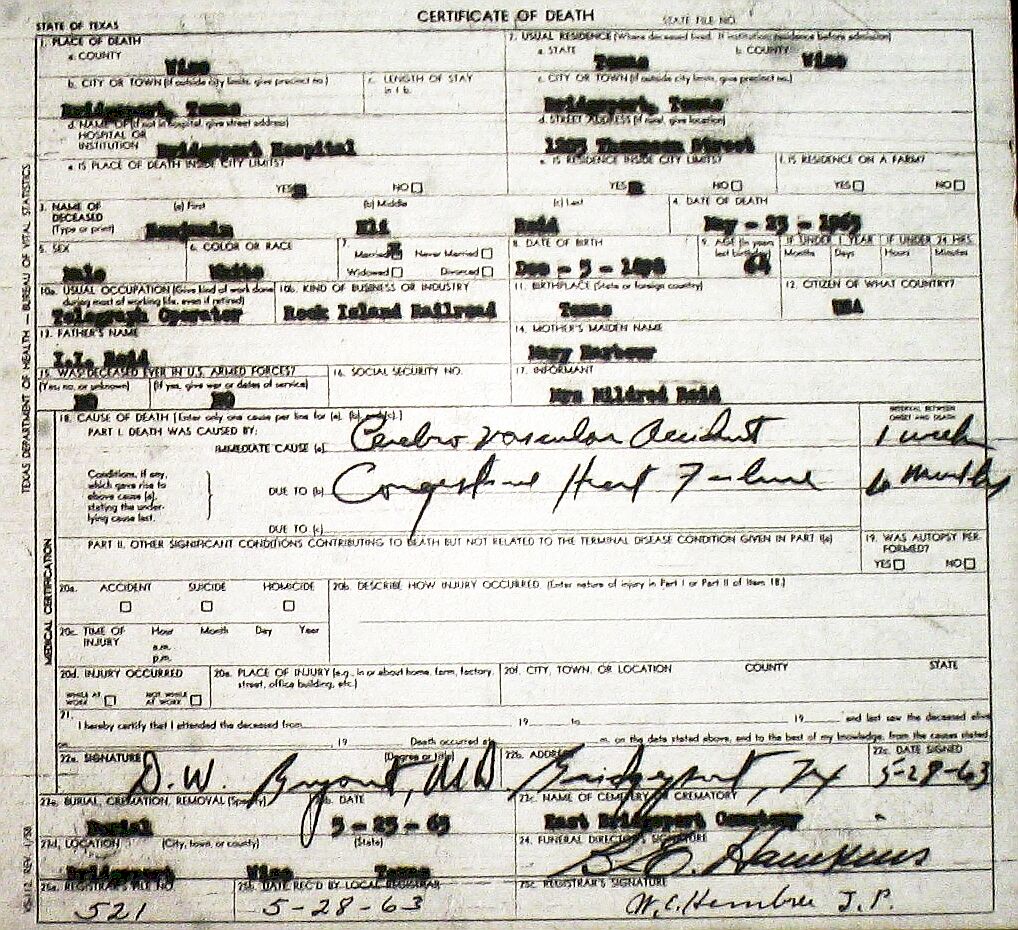 CERTIFICATE OF DEATH
STATE OF TEXAS
STATE FILE NO.
1. PLACE OF DEATH
a. COUNTY
Wise
2. USUAL RESIDENCE (Where deceased lived. If institution: residence before admission)
a. STATE
Texas
b. COUNTY
Wise
b. CITY OR TOWN (If outside city limits, give precinct no.)
Bridgeport, Texas
c. LENGTH OF STAY
in 1 b.
c. CITY OR TOWN (If outside city limits, give precinct no.)
Bridgeport, Texas
d. NAME OF (If not in hospital, give street address)
HOSPITAL OR
INSTITUTION
Bridgeport Hospital
d. STREET ADDRESS (If rural, give location)
Thompson Street
e. IS PLACE OF DEATH INSIDE CITY LIMITS?
YES NO
e. IS RESIDENCE INSIDE CITY LIMITS?
YES NO
f. IS RESIDENCE ON A FARM?
YES NO
3. NAME OF
DECEASED
(Type or print)
(a) First
Benjamin
(b) Middle
Eli
(c) Last
Reid
4. DATE OF DEATH
May - 23 - 1963
5. SEX
Male
6. COLOR OR RACE
White
7.
Married X Never Married
Widowed Divorced
8. DATE OF BIRTH
Dec - 5 - 1898
9. AGE (In years
last birthday)
64
IF UNDER 1 YEAR
Months Days
IF UNDER 24 HRS.
Hours Minutes
10a. USUAL OCCUPATION (Give kind of work done
during most of working life, even if retired)
Telegraph Operator
10b. KIND OF BUSINESS OR INDUSTRY
Rock Island Railroad
11. BIRTHPLACE (State or foreign country)
Texas
12. CITIZEN OF WHAT COUNTRY?
USA
13. FATHER'S NAME
Reid
14. MOTHER'S MAIDEN NAME
Mary Barbour
15. WAS DECEASED EVER IN U.S. ARMED FORCES?
(Yes, no, or unknown)
NO
(If yes, give war or dates of service)
NO
16. SOCIAL SECURITY NO.
17. INFORMANT
Mrs Mildred Reid
18. CAUSE OF DEATH [Enter only one cause per line for (a), (b), and (c).]
PART I. DEATH WAS CAUSED BY:
IMMEDIATE CAUSE (a)
Cerebro vascular Accident
INTERVAL BETWEEN
ONSET AND DEATH
1 week
Conditions, if any,
which gave rise to
above cause (a),
stating the under-
lying cause last.
DUE TO (b)
Congestive Heart Failure
6 months
DUE TO (c)
PART II. OTHER SIGNIFICANT CONDITIONS CONTRIBUTING TO DEATH BUT NOT RELATED TO THE TERMINAL DISEASE CONDITION GIVEN IN PART I(a)
19. WAS AUTOPSY PER-
FORMED?
YES NO
20a. ACCIDENT SUICIDE HOMICIDE
20b. DESCRIBE HOW INJURY OCCURRED. (Enter nature of injury in Part I or Part II of item 18.)
20c. TIME OF
INJURY
Hour Month Day Year
a.m.
p.m.
20d. INJURY OCCURRED
WHILE AT
WORK
NOT WHILE
AT WORK
20e. PLACE OF INJURY (e.g., in or about home, farm, factory,
street, office building, etc.)
20f. CITY, TOWN, OR LOCATION COUNTY STATE
21.
I hereby certify that I attended the deceased from 19 to 19 and last saw the deceased alive
on 19 Death occurred at m. on the date stated above, and to the best of my knowledge, from the causes stated.
22a. SIGNATURE (Degree or title)
D.W. Bryant, MD
22b. ADDRESS
Bridgeport, Tx
22c. DATE SIGNED
5-28-63
23a. BURIAL, CREMATION, REMOVAL (Specify)
Burial
23b. DATE
5 - 25 - 63
23c. NAME OF CEMETERY OR CREMATORY
East Bridgeport Cemetery
23d. LOCATION (City, town, or county) (State)
Bridgeport Wise Texas
24. FUNERAL DIRECTOR'S SIGNATURE
Hawkins
25a. REGISTRAR'S FILE NO.
521
25b. DATE REC'D BY LOCAL REGISTRAR
5-28-63
25c. REGISTRAR'S SIGNATURE
W.C. Hembree J.P.
TEXAS DEPARTMENT OF HEALTH — BUREAU OF VITAL STATISTICS
MEDICAL CERTIFICATION